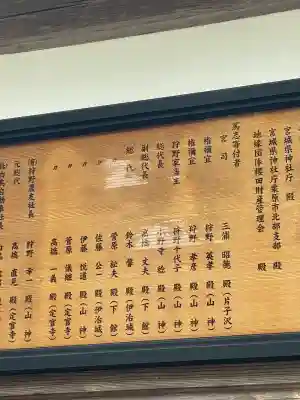 宮城県神社庁 殿
宮城県神社庁栗原市北部支部 殿
地縁団体櫻田財産管理会 殿
篤志寄付者
宮司 三浦 昭範 殿(片子沢)
権禰宜 狩野 英孝 殿(山神)
権禰宜 狩野 孝彦 殿(山神)
狩野家当主 狩野 千代子 殿(山神)
総代長 小野寺 稔 殿(山神)
副総代長 文夫 殿(下舘)
総代 鈴木 馨 殿(伊治城)
〃 菅原 松夫 殿(下舘)
〃 佐藤 公一 殿(伊治城)
〃 伊藤 悦道 殿(山神)
〃 菅原 儀継 殿(定官寺)
〃 高橋 一義 殿(定官寺)
狩野 幸一 殿(山神)
元総代 高橋 直見 殿(定官寺)